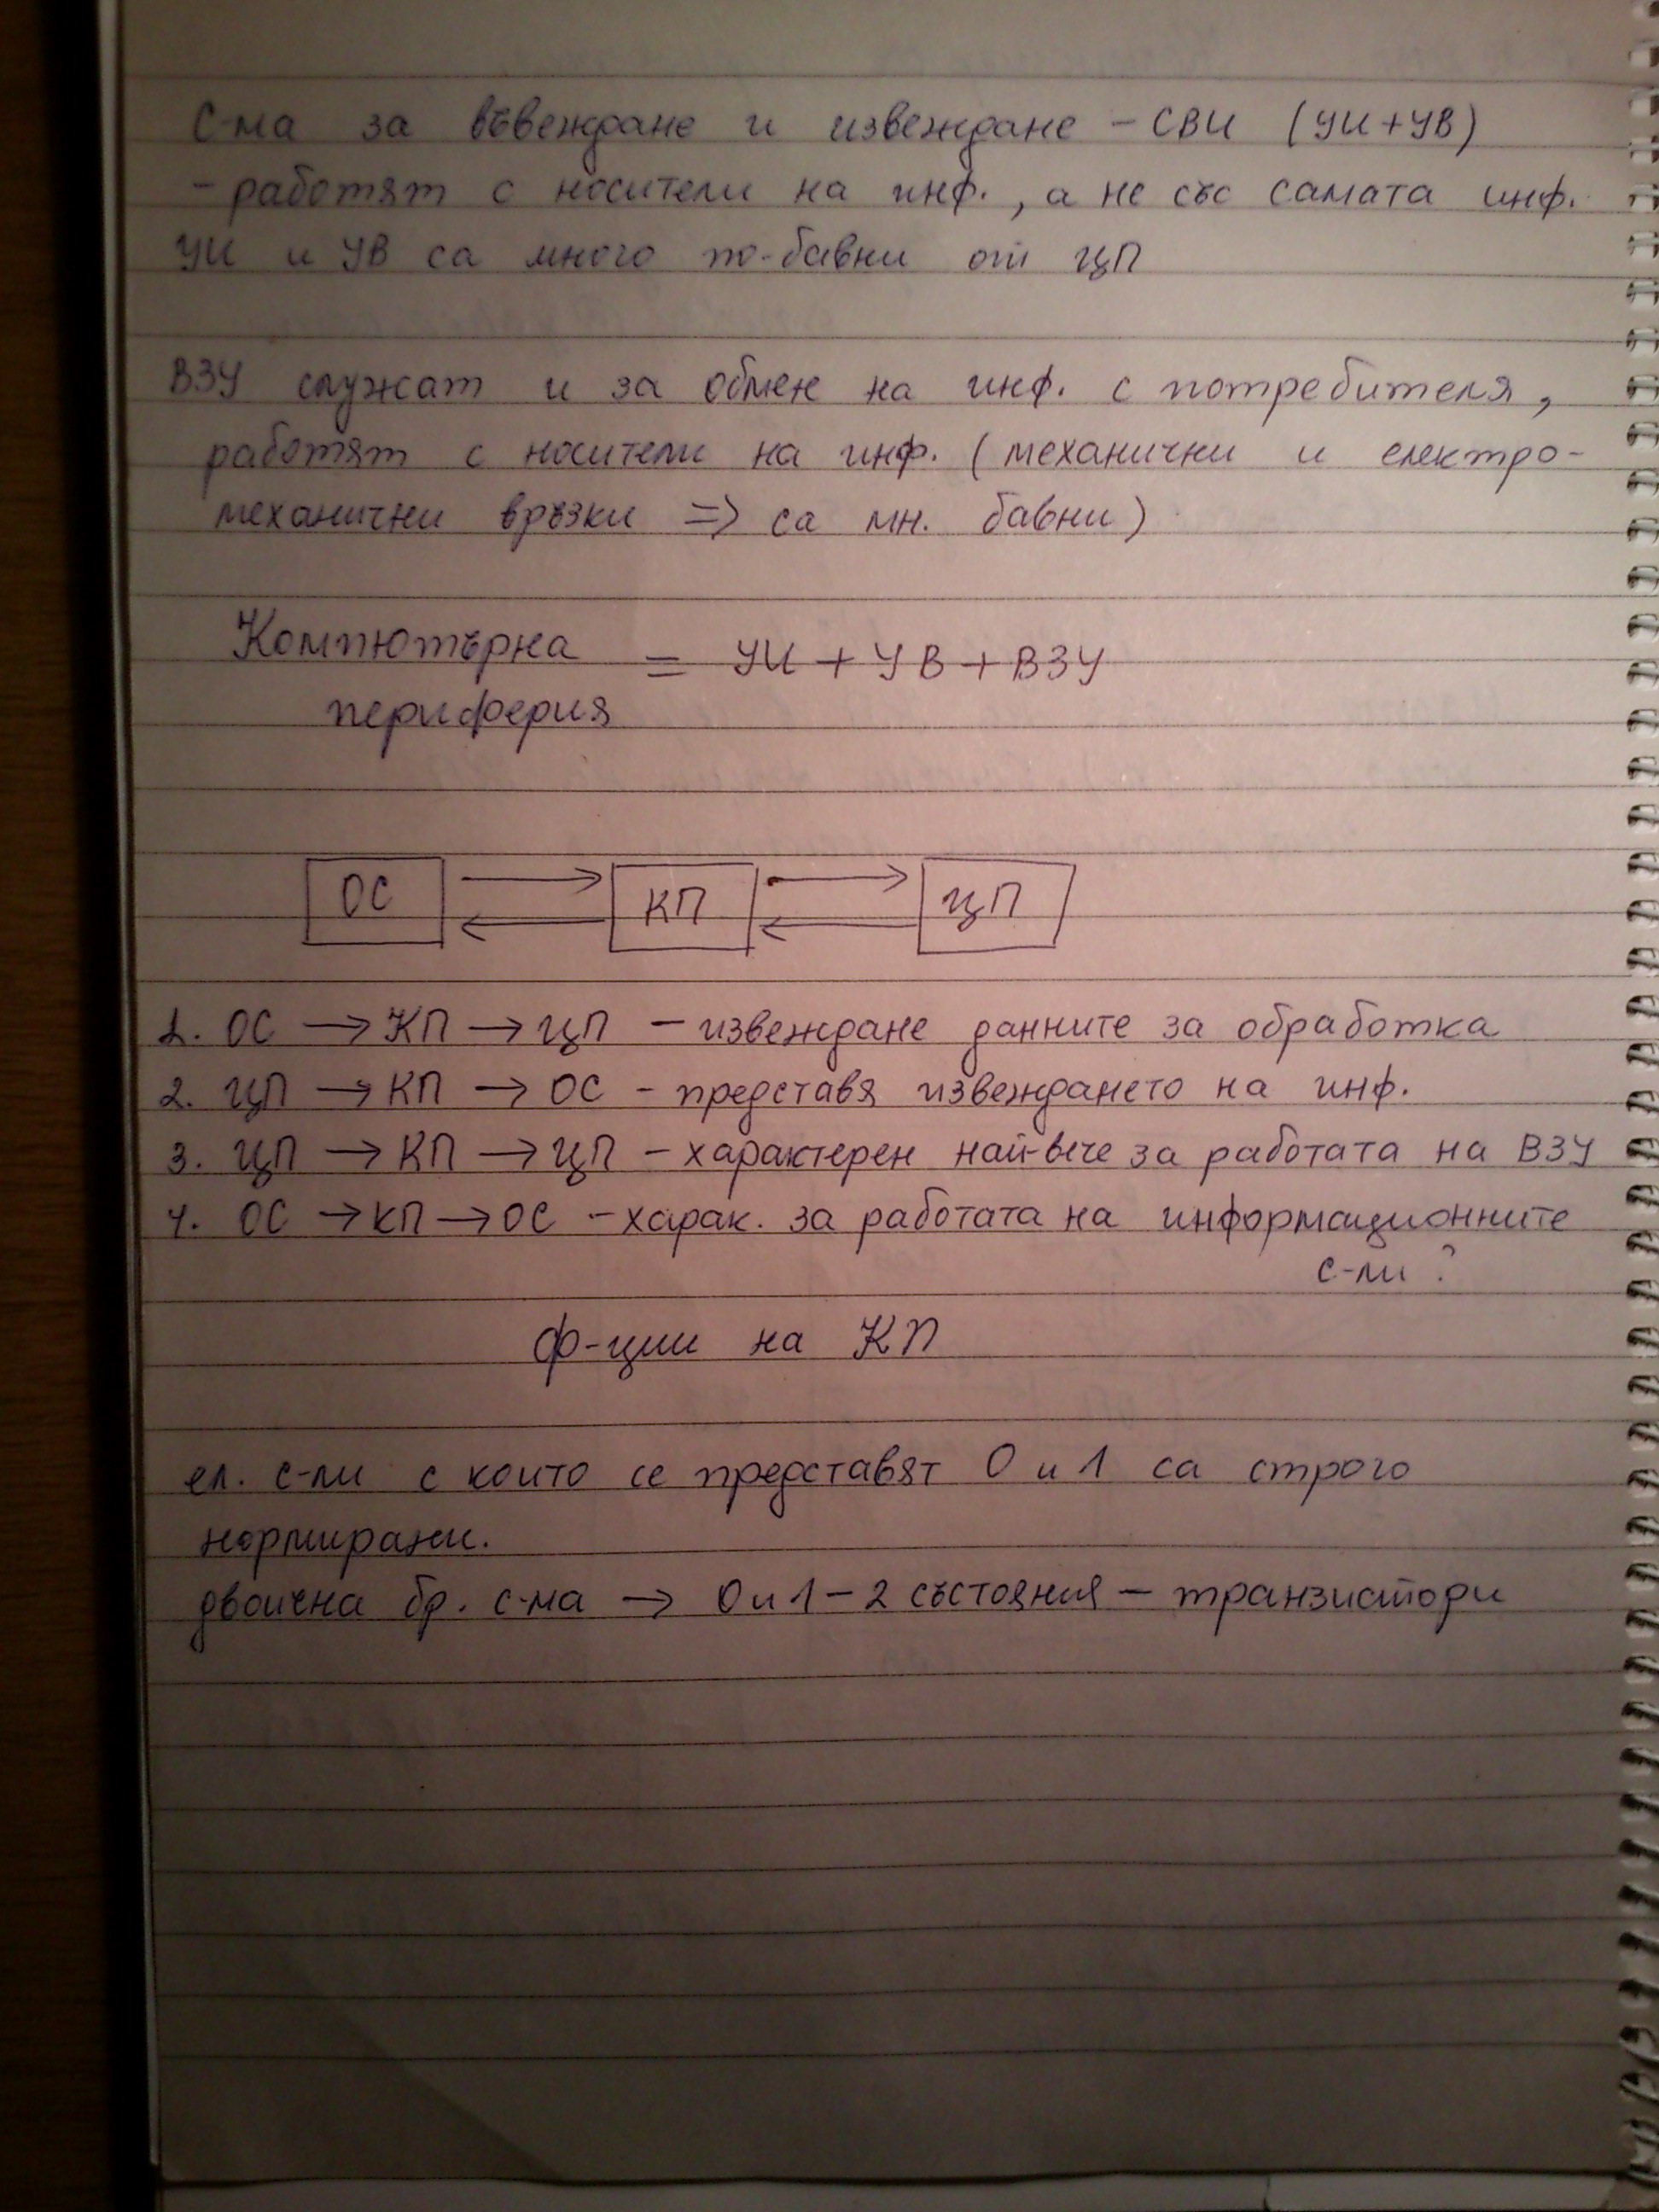 С-ма за въвеждане и извеждане - СВИ (УИ+УВ)
- работят с носители на инф., а не със самата инф.
УИ и УВ са много по-бавни от ЦП
ВЗУ служат и за обмен на инф. с потребителя,
работят с носители на инф. (механични и електро-
механични връзки => са мн. бавни)
Компютърна = УИ + УВ + ВЗУ
периферия
ОС КП ЦП
1. ОС → КП → ЦП - извеждане данните за обработка
2. ЦП → КП → ОС - представя извеждането на инф.
3. ЦП → КП → ЦП - характерен най-вече за работата на ВЗУ
4. ОС → КП → ОС - харак. за работата на информационните
с-ми ?
ф-ции на КП
ел. с-ли с които се представят 0 и 1 са строго
нормирани.
двоична бр. с-ма → 0 и 1 - 2 състояния - транзистори